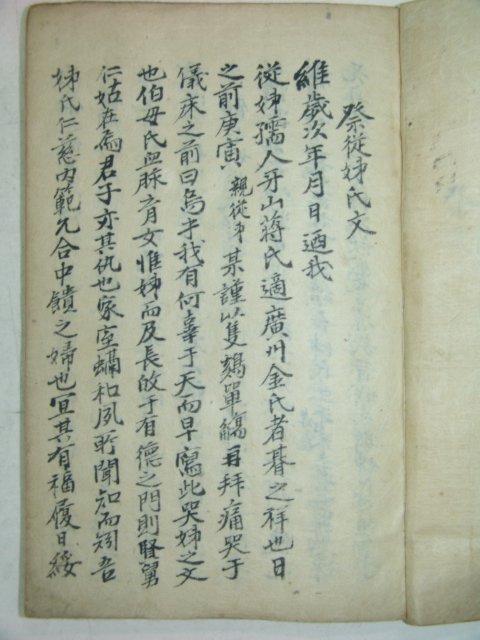 祭從姉氏文
維歲次年月日迺我
從姉孺人牙山蔣氏適廣州金氏者朞之祥也日
之前庚寅親從弟某謹以隻鷄單觴再拜痛哭于
儀床之前曰烏乎我有何辜于天而早寫此哭姉之文
也伯母氏血脉育女惟姉而及長故于有德之門則賢舅
仁姑在焉君子亦其仇也家室 和夙所聞知而矧吾
姉氏仁慈內範允合中饋之婦也宜其有福履日綏